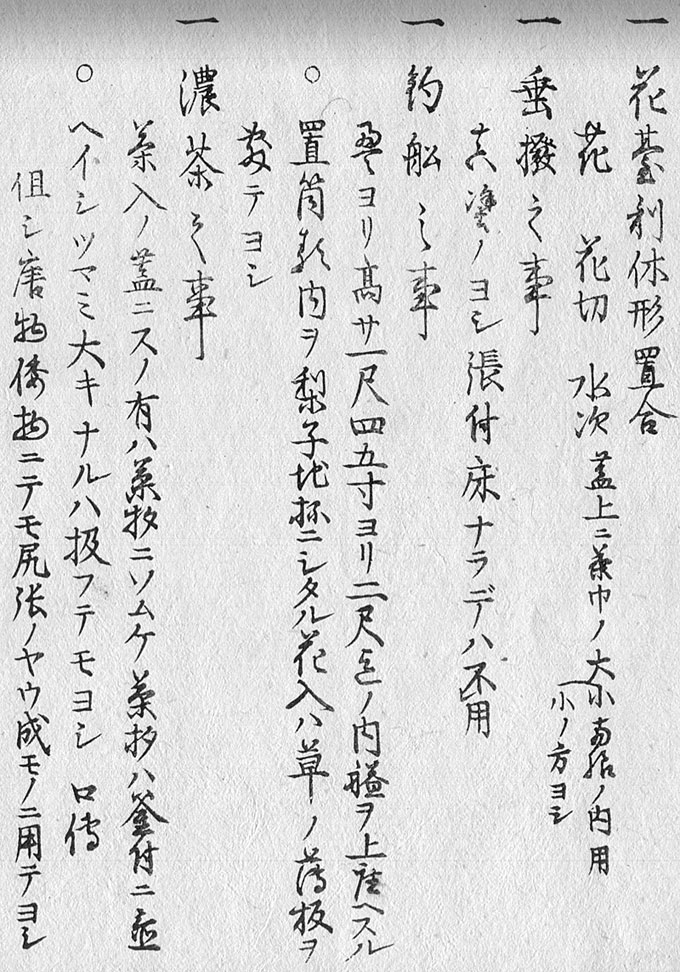 一 花臺利休形置合
花 花切 水次 蓋上ニ茶巾ノ大小 ノ内用
小ノ方ヨシ
一 垂撥之事
真塗ノヨシ張付床ナラデハ不用
一 釣舩之事
畳ヨリ高サ一尺四五寸ヨリ二尺迄ノ内艫ヲ上座ヘスル
○ 置筒類内ヲ梨子地抔ニシタル花入ハ草ノ薄板ヲ
敷テヨシ
一 濃茶之事
茶入ノ蓋ニスノ有ハ茶杓ニソムケ茶杓ハ釜付ニ
○ ヘイシツマミ大キナルハ扱フテモヨシ 口傳
伹シ唐物倭物ニテモ尻張ノヤウ成モノニ用テヨシ